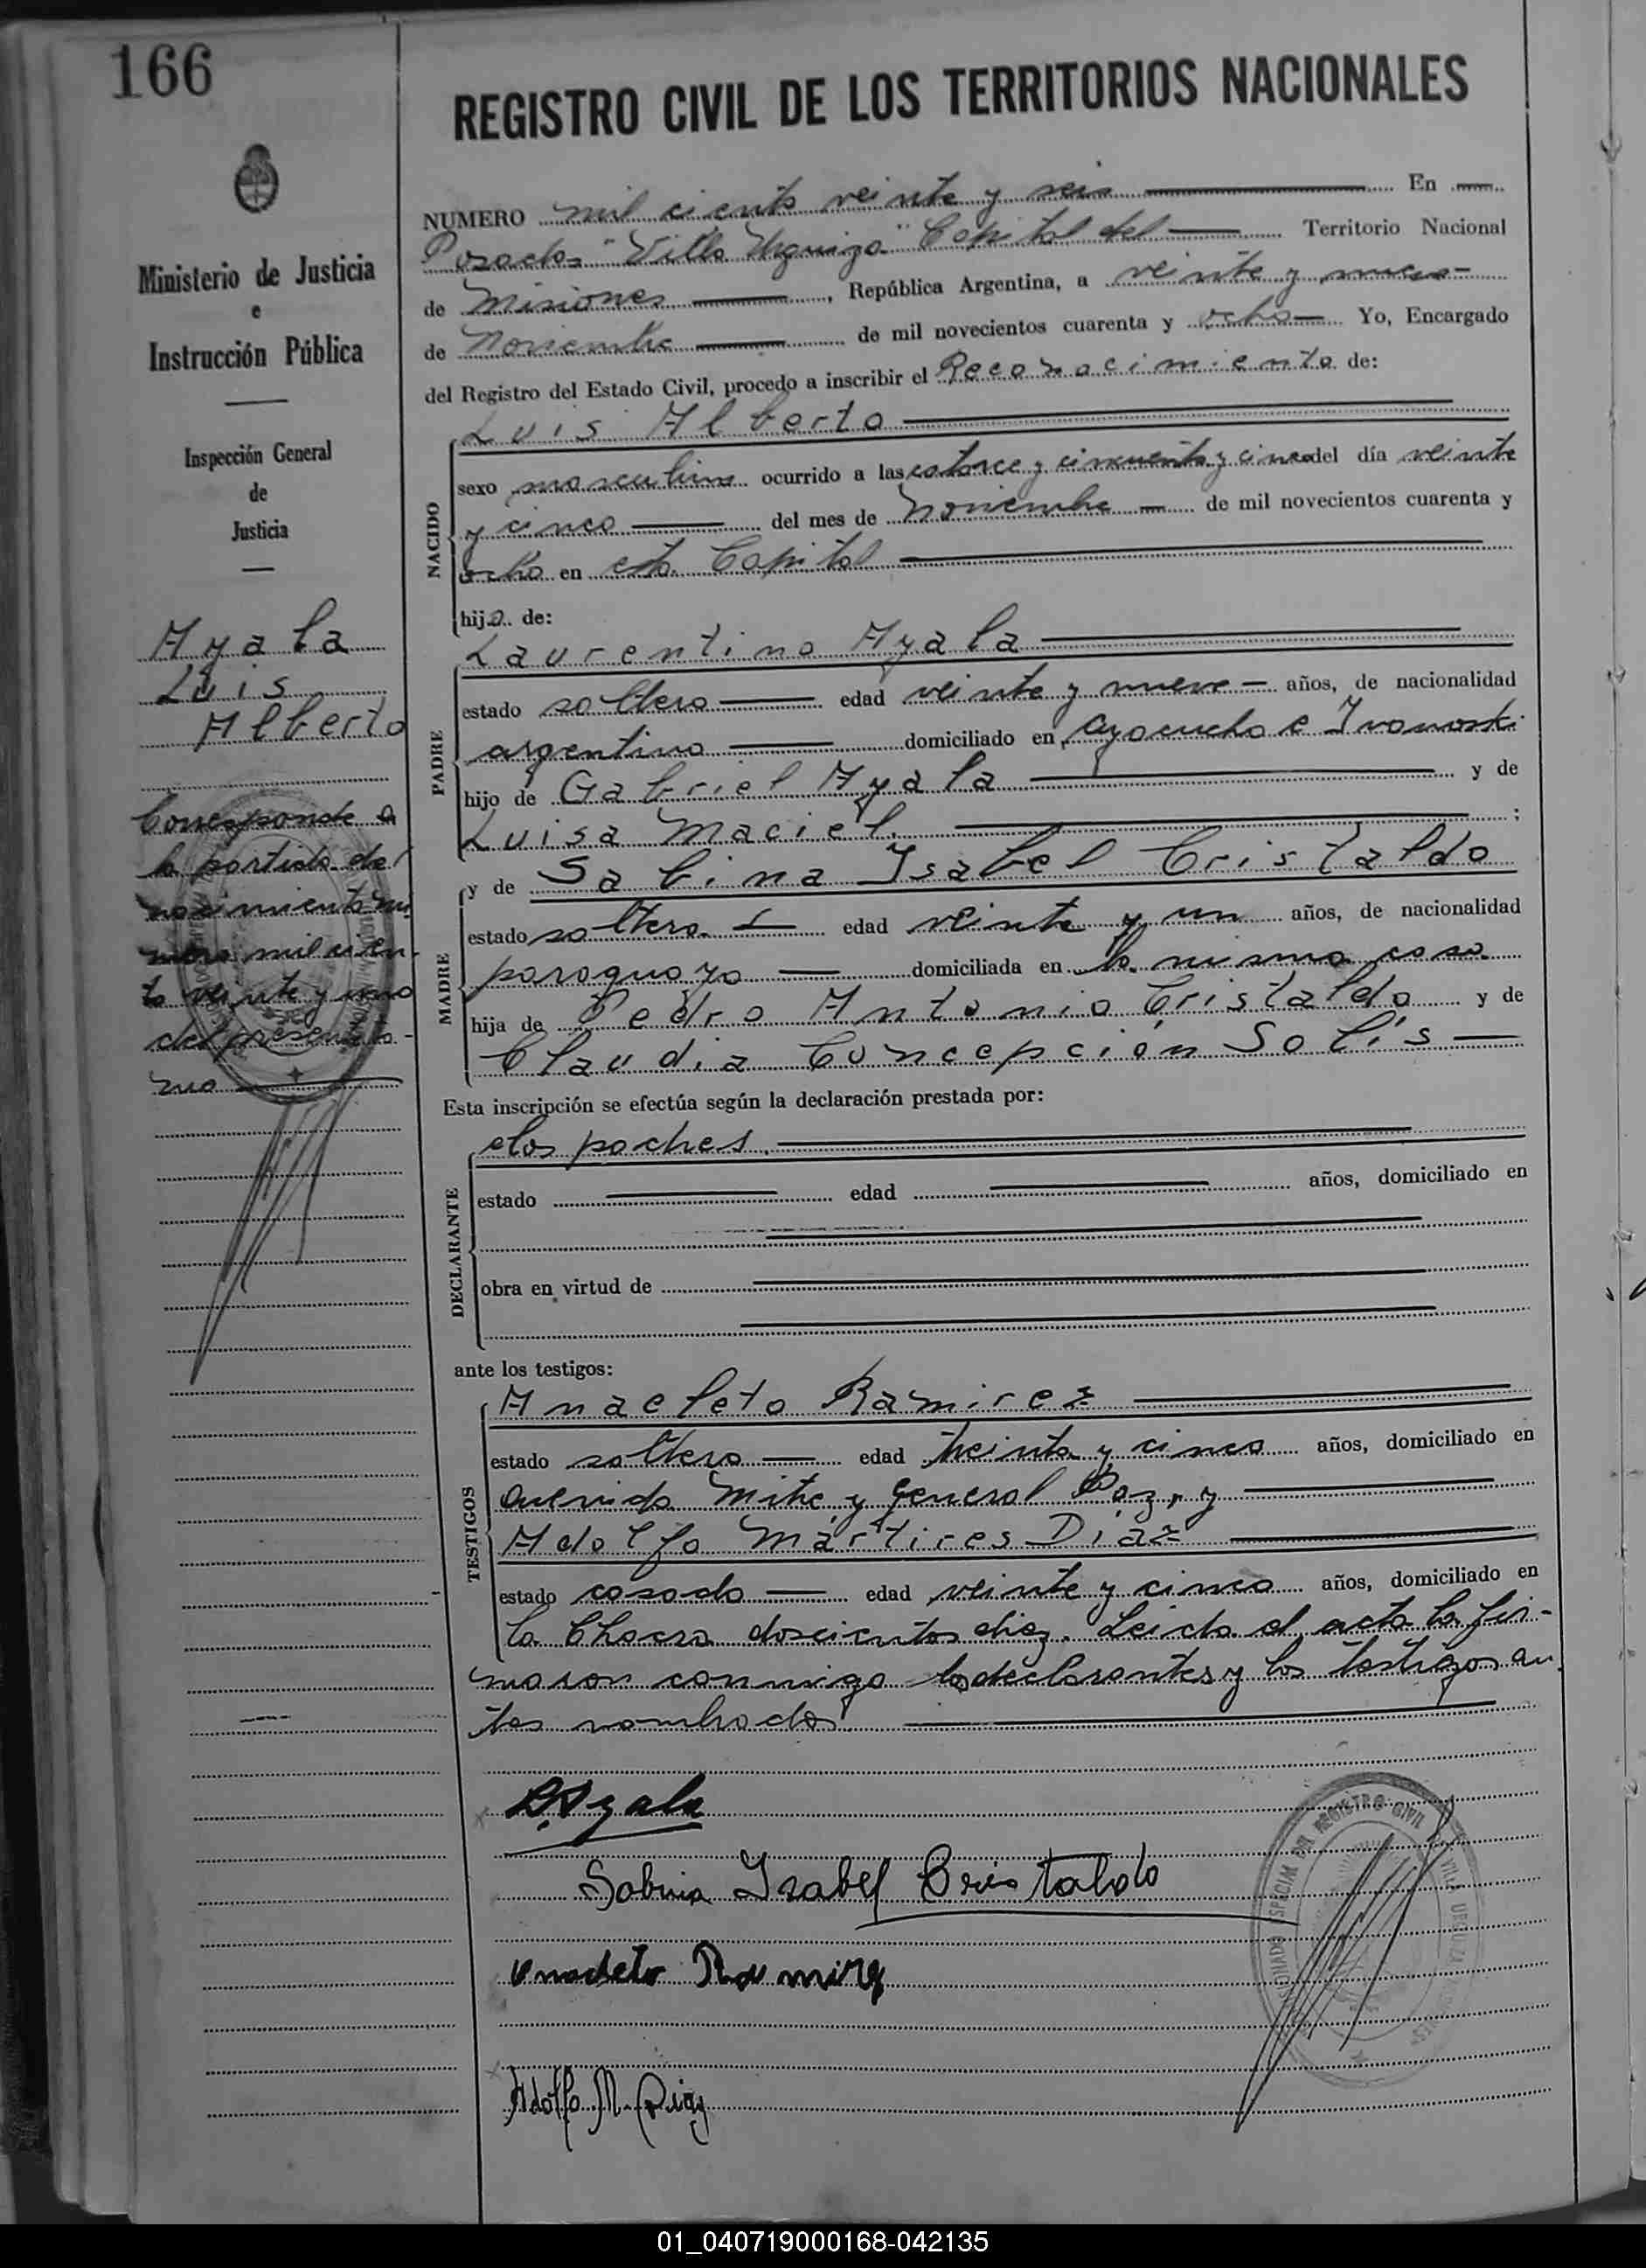 166
REGISTRO CIVIL DE LOS TERRITORIOS NACIONALES
Ministerio de Justicia
e
Instrucción Pública
Inspección General
de
Justicia
Ayala
Luis
Alberto
Corresponde a
la partida de
nacimiento nú
mero mil cien-
to veinte y uno
del presente to-
mo
NUMERO mil ciento veinte y seis En
Posadas "Villa Urquiza" Capital del Territorio Nacional
de Misiones, República Argentina, a veinte y nueve
de Noviembre de mil novecientos cuarenta y ocho Yo, Encargado
del Registro del Estado Civil, procedo a inscribir el Reconocimiento de:
Luis Alberto
NACIDO
sexo masculino ocurrido a las catorce y cincuenta y cinco del día veinte
y cinco del mes de Noviembre de mil novecientos cuarenta y
ocho en esta Capital
hijo de:
Laurentino Ayala
PADRE
estado soltero edad veinte y nueve años, de nacionalidad
argentino domiciliado en Ayacucho e Ivanoski
hijo de Gabriel Ayala y de
Luisa Maciel ;
y de Sabina Isabel Cristaldo
MADRE
estado soltera edad veinte y un años, de nacionalidad
paraguaya domiciliada en la misma casa
hija de Pedro Antonio Cristaldo y de
Claudia Concepción Solís
Esta inscripción se efectúa según la declaración prestada por:
los padres
DECLARANTE
estado edad años, domiciliado en
obra en virtud de
ante los testigos:
Anacleto Ramirez
TESTIGOS
estado soltero edad treinta y cinco años, domiciliado en
Avenida Mitre y General Paz, y
Adolfo Mártires Díaz
estado casado edad veinte y cinco años, domiciliado en
la Chacra doscientos diez. Leida el acta la fir-
maron conmigo los declarantes y los testigos an
tes nombrados
L. Ayala
Sabina Isabel Cristaldo
Anacleto Ramirez
Adolfo M. Diaz
REGISTRO CIVIL
VILLA URQUIZA
01_040719000168-042135